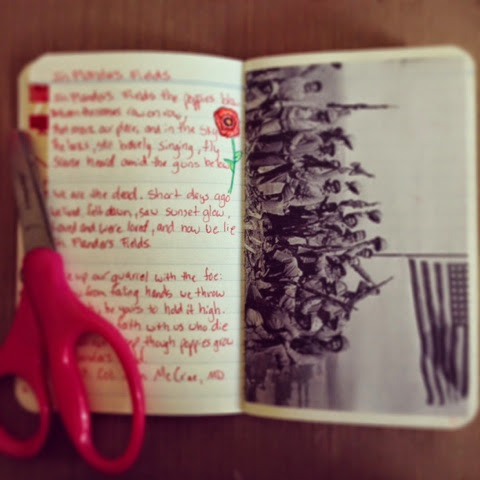 In Flanders Fields
In Flanders Fields the poppies blo
between the crosses, row on row,
that mark our place, and in the sky
the larks, still bravely singing, fly
Scarce heard amid the guns below.
We are the dead. Short days ago
we lived, felt dawn, saw sunset glow,
loved and were loved, and now we lie
in Flanders Fields.
up our quarrel with the foe:
from failing hands we throw
be yours to hold it high.
faith with us who die
though poppies grow
Col. McCrae, MD